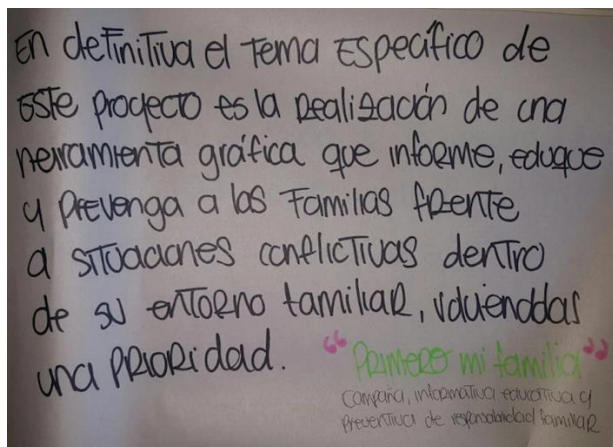 En definitiva el tema Específico de
este proyecto es la Realización de una
herramienta gráfica que informe, eduque
y prevenga a las Familias frente
a situaciones conflictivas dentro
de su entorno familiar, volviendolas
una PRIORIDAD.
"Primero mi familia"
Campaña, informativa educativa y
preventiva de responsabilidad familiar